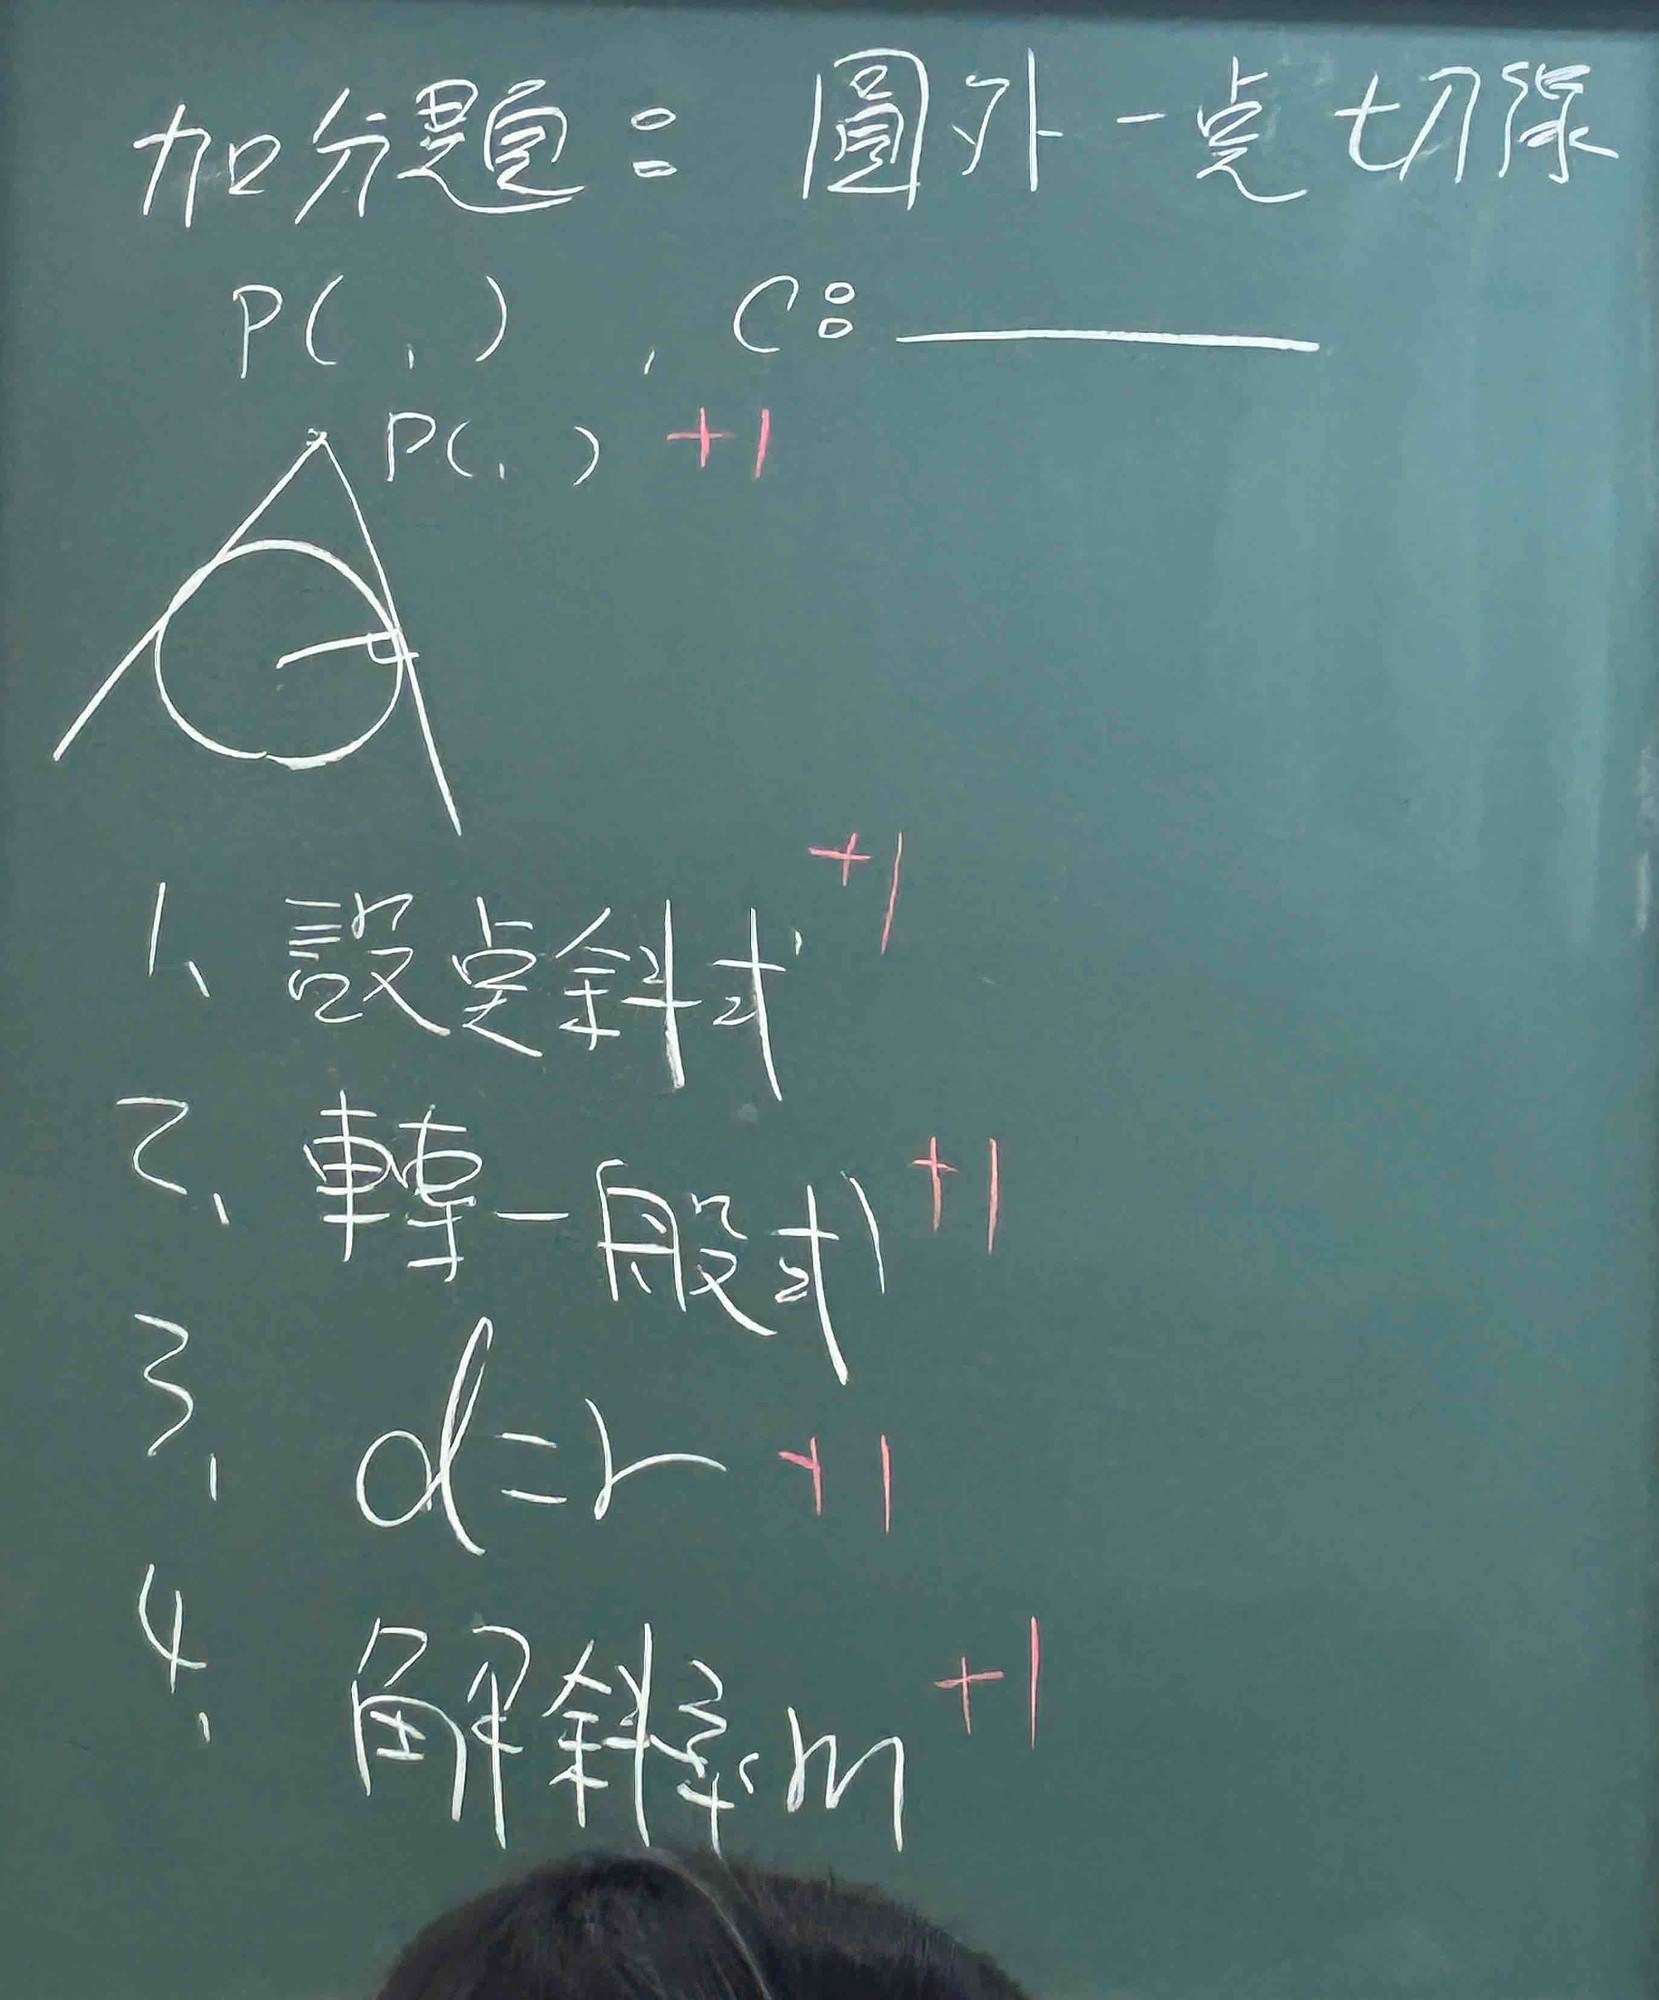 加分題：圓外一点切線
P( , ) , C：
P( , ) +1
1、設点斜式 +1
2、轉一般式 +1
3、d=r +1
4、解斜率m +1